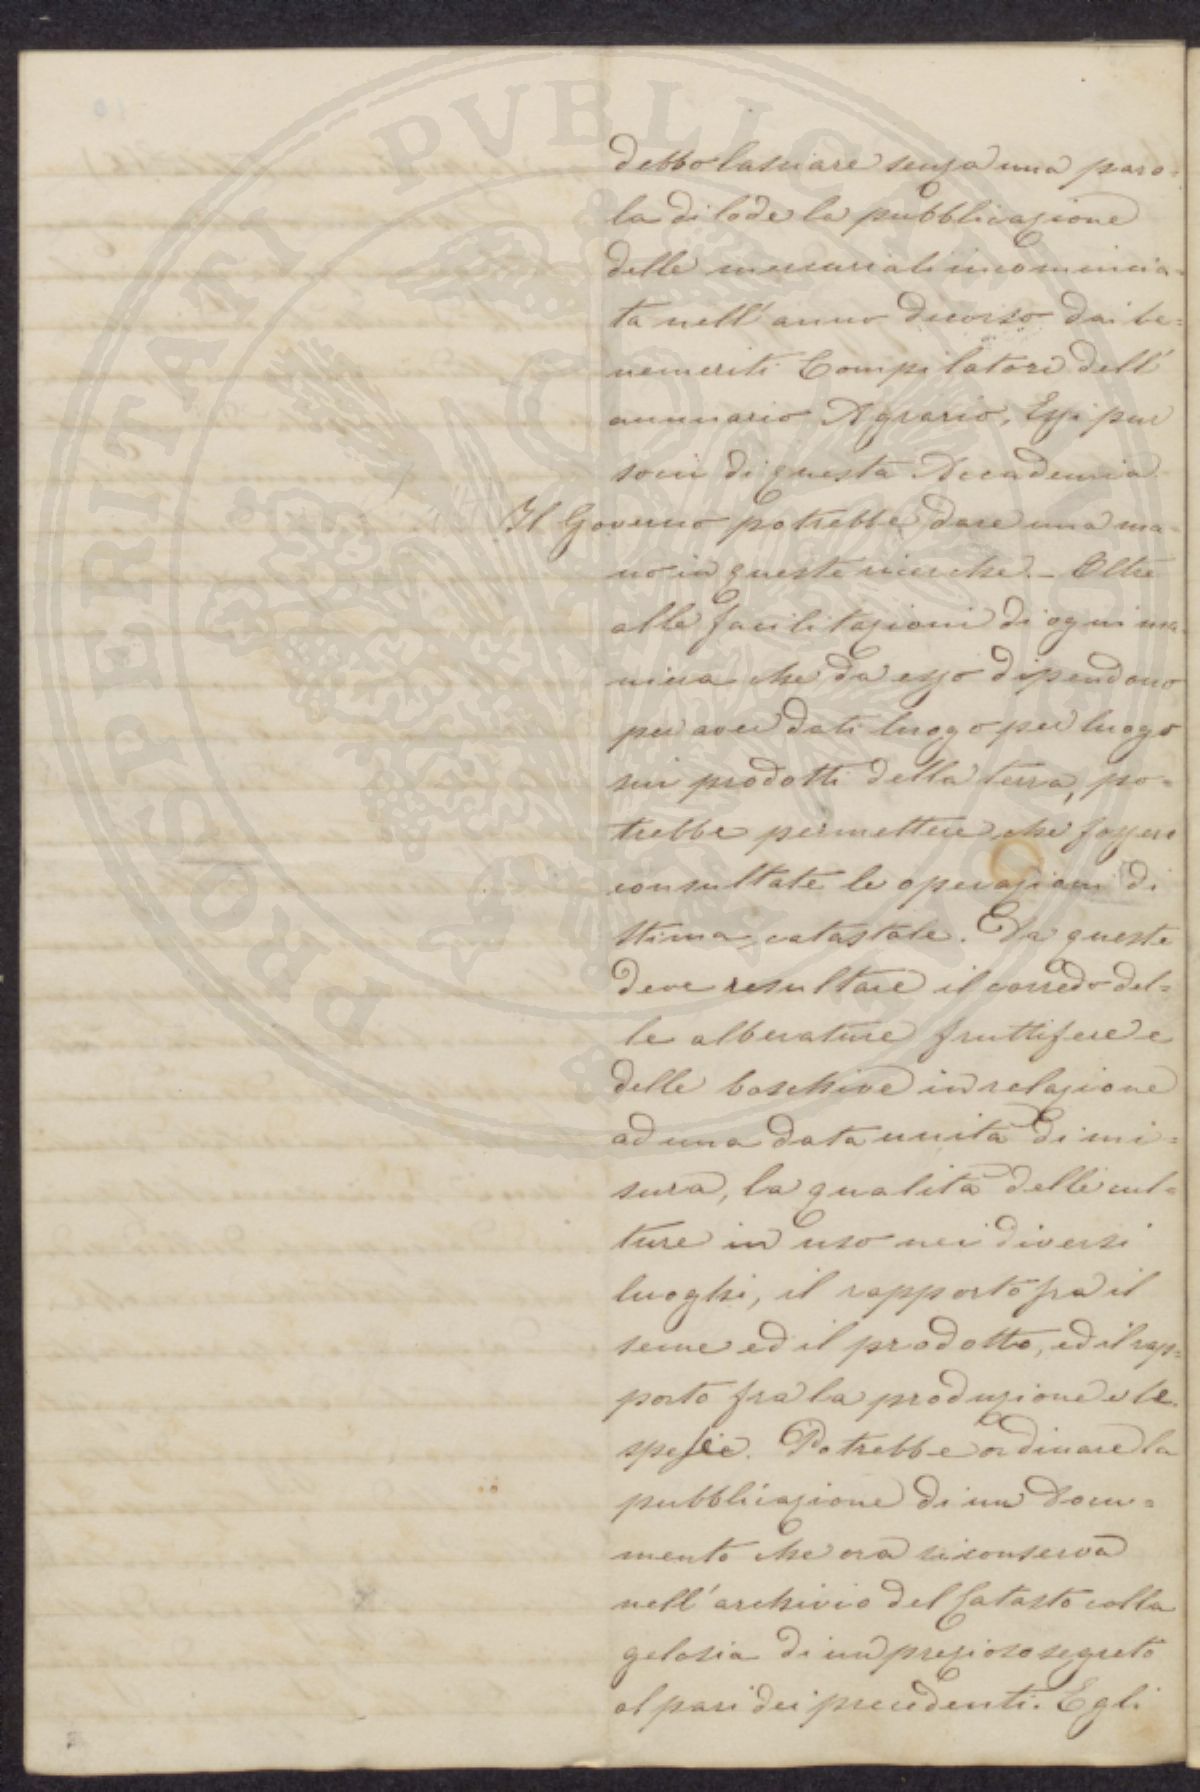 debbo lasciare senza una paro=
la di lode la pubblicazione
delle mercuriali incomincia=
ta nell'anno decorso dai be=
nemeriti Compilatori dell'
annuario Agrario, Essi pur
socii di questa Accademia
Il Governo potrebbe dare una ma=
no in queste ricerche. – Oltre
alle facilitazioni di ogni ma
niera che da esso dipendono
per aver dati luogo per luogo
sui prodotti della terra, po=
trebbe permettere che fossero
consultate le operazioni di
stima catastale. Da queste
deve resultare il corredo del=
le alberature fruttifere e
delle boschive in relazione
ad una data unità di mi=
sura, la qualità delle cul=
ture in uso nei diversi
luoghi, il rapporto fra il
seme ed il prodotto, ed il rap=
porto fra la produzione e le
spese. Potrebbe ordinare la
pubblicazione di un Docu=
mento che ora si conserva
nell'archivio del Catasto colla
gelosia di un prezioso segreto
al pari dei precedenti. Egli
PROSPERITATI PUBLICAE